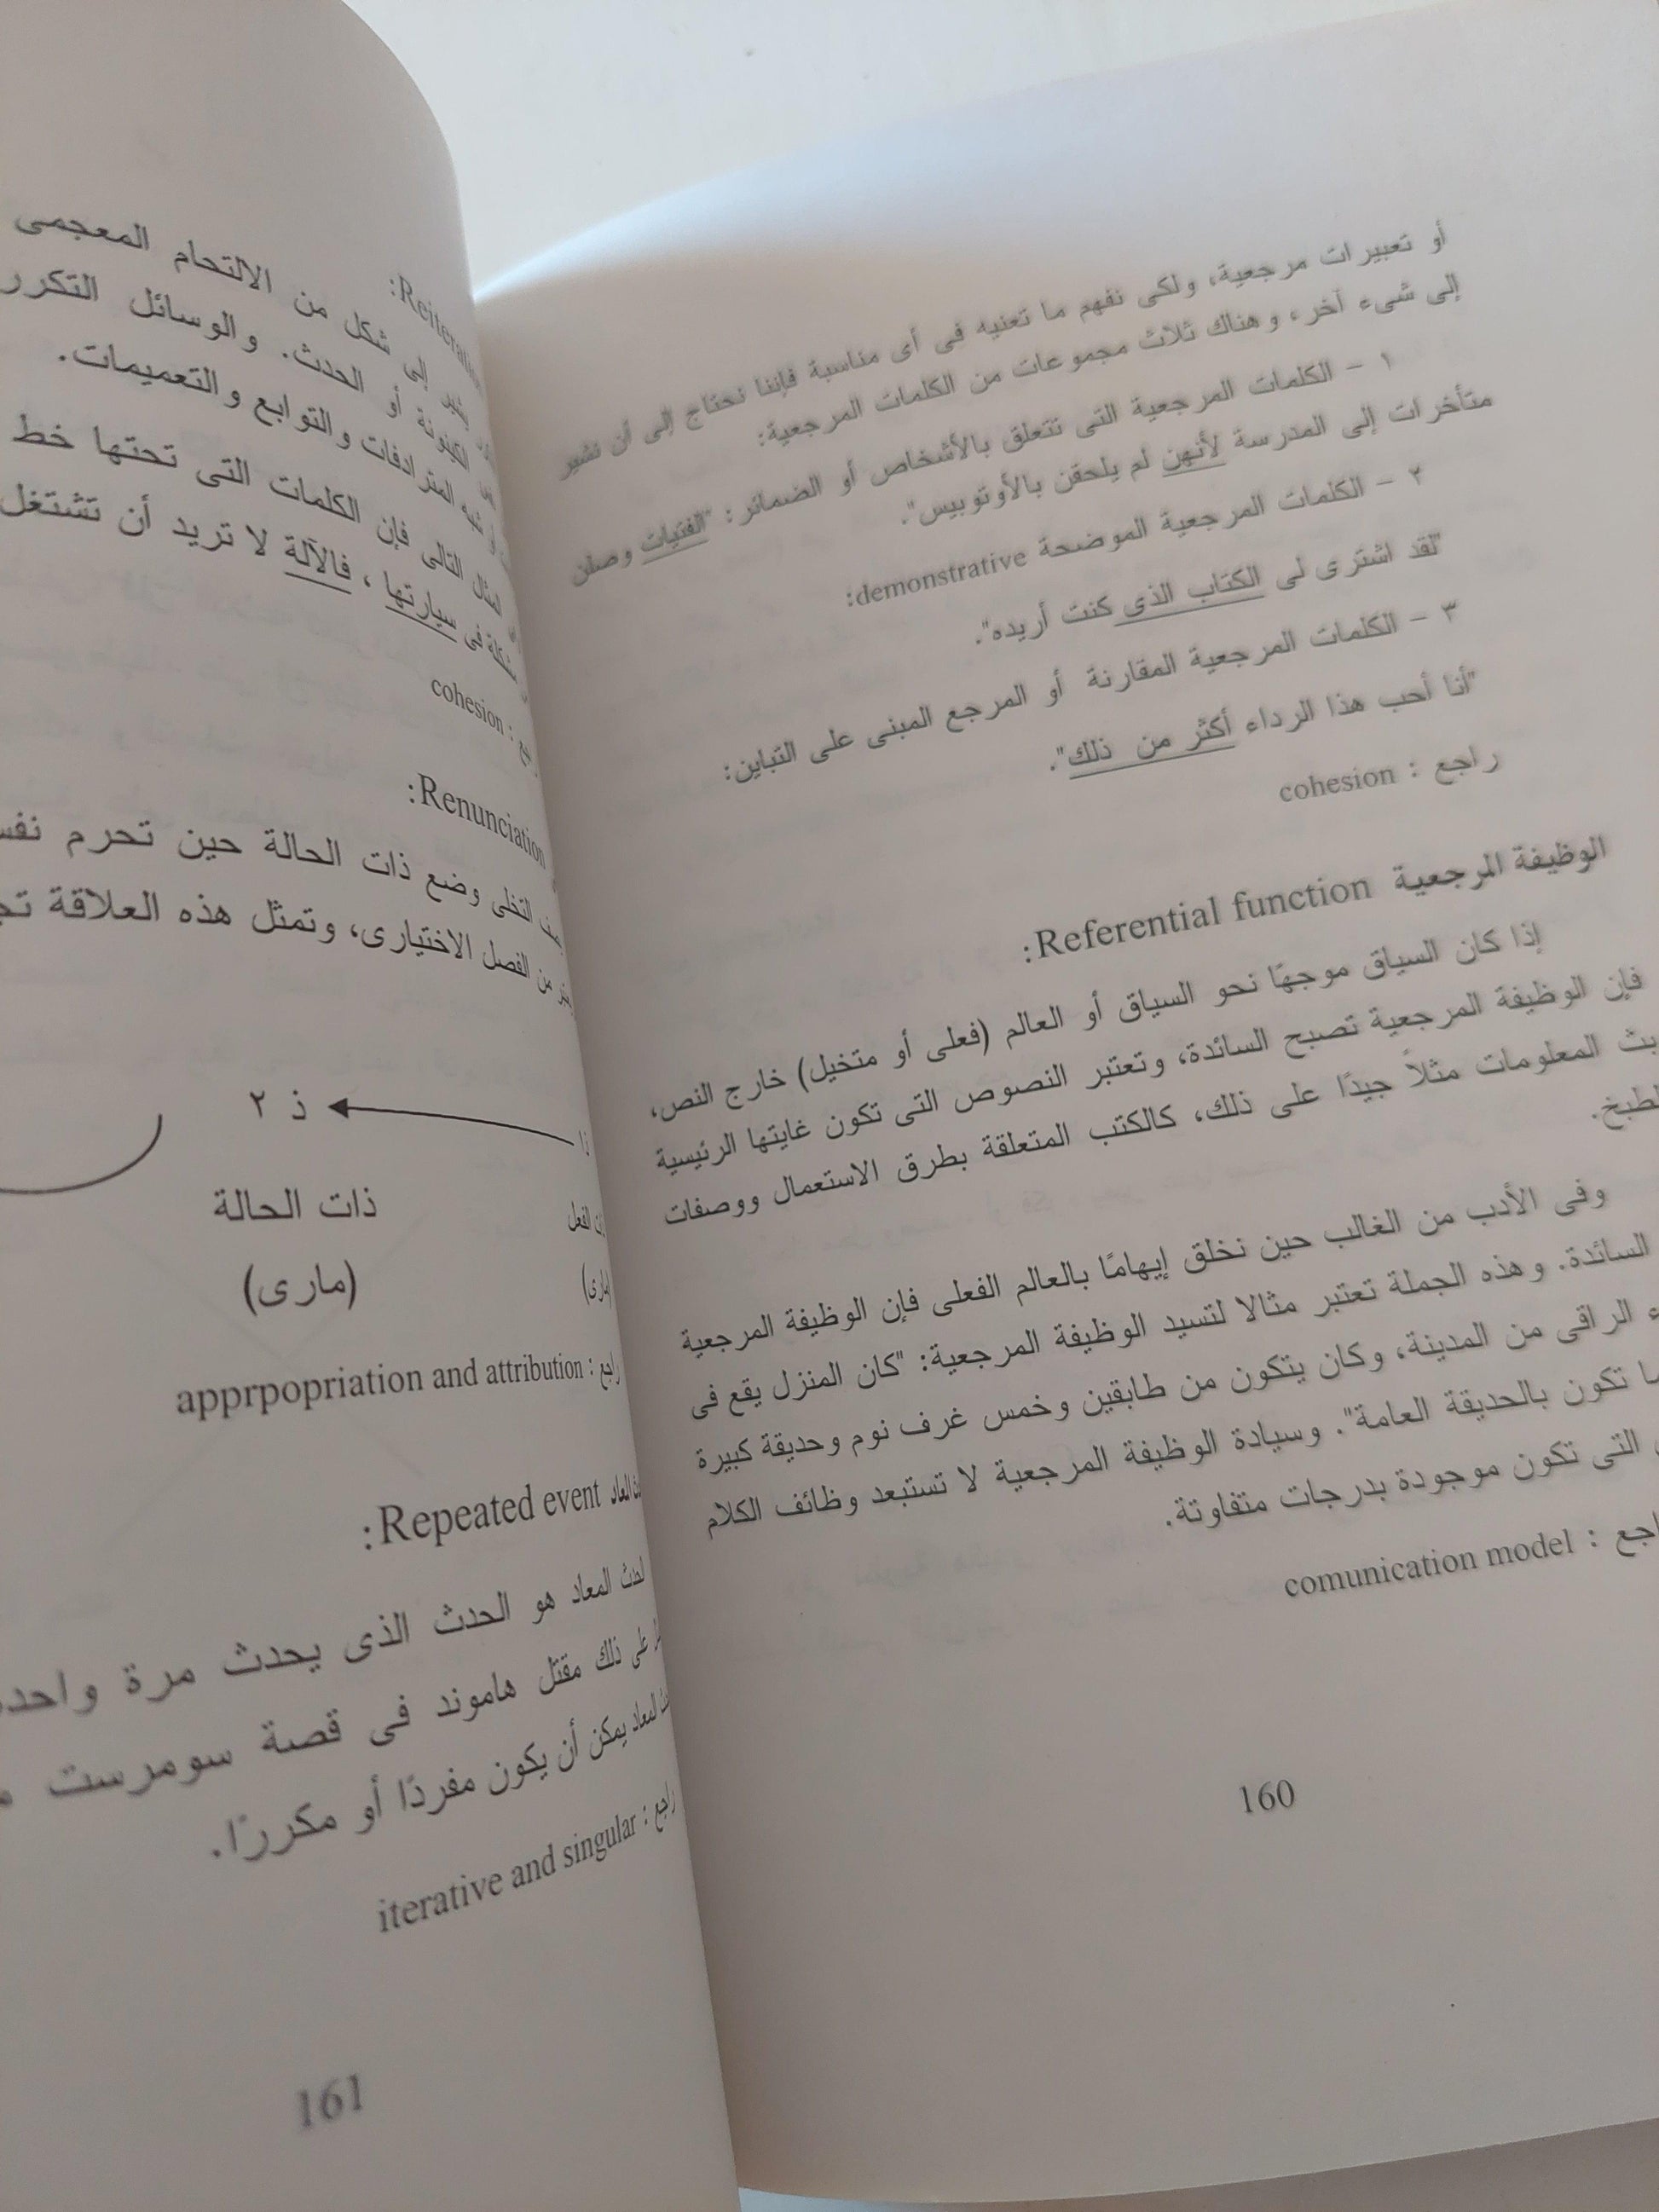 أو تعبيرات مرجعية، ولكى نفهم ما تعنيه فى أى مناسبة فإننا نحتاج إلى أن نشير
إلى شىء آخر، وهناك ثلاث مجموعات من الكلمات المرجعية:
١ - الكلمات المرجعية التى تتعلق بالأشخاص أو الضمائر: "الفتيات وصلن
متأخرات إلى المدرسة لأنهن لم يلحقن بالأوتوبيس".
٢ - الكلمات المرجعية الموضحة demonstrative:
"لقد اشترى لى الكتاب الذى كنت أريده".
٣ - الكلمات المرجعية المقارنة أو المرجع المبنى على التباين:
"أنا أحب هذا الرداء أكثر من ذلك".
راجع : cohesion
الوظيفة المرجعية Referential function:
إذا كان السياق موجهًا نحو السياق أو العالم (فعلى أو متخيل) خارج النص،
فإن الوظيفة المرجعية تصبح السائدة، وتعتبر النصوص التى تكون غايتها الرئيسية
بث المعلومات مثلاً جيدًا على ذلك، كالكتب المتعلقة بطرق الاستعمال ووصفات
الطبخ.
وفى الأدب من الغالب حين نخلق إيهامًا بالعالم الفعلى فإن الوظيفة المرجعية
السائدة. وهذه الجملة تعتبر مثالا لتسيد الوظيفة المرجعية: "كان المنزل يقع فى
الراقى من المدينة، وكان يتكون من طابقين وخمس غرف نوم وحديقة كبيرة
تكون بالحديقة العامة". وسيادة الوظيفة المرجعية لا تستبعد وظائف الكلام
التى تكون موجودة بدرجات متفاوتة.
راجع : comunication model
160
إلى شكل من الالتحام المعجمى
الكينونة أو الحدث. والوسائل التكرر
شبه المترادفات والتوابع والتعميمات.
المثال التالى فإن الكلمات التى تحتها خط
فى سيارتها، فالآلة لا تريد أن تشتغل
cohesion
Renunciation:
التخلى وضع ذات الحالة حين تحرم
من الفصل الاختيارى، وتمثل هذه العلاقة
ذ ٢
ذات الحالة
الفعل
(مارى)
راجع : apprpopriation and attribution
المعاد Repeated event:
الحدث المعاد هو الحدث الذى يحدث مرة
على ذلك مقتل هاموند فى قصة سومرست
المعاد يمكن أن يكون مفردًا أو مكررًا.
راجع : iterative and singular
161